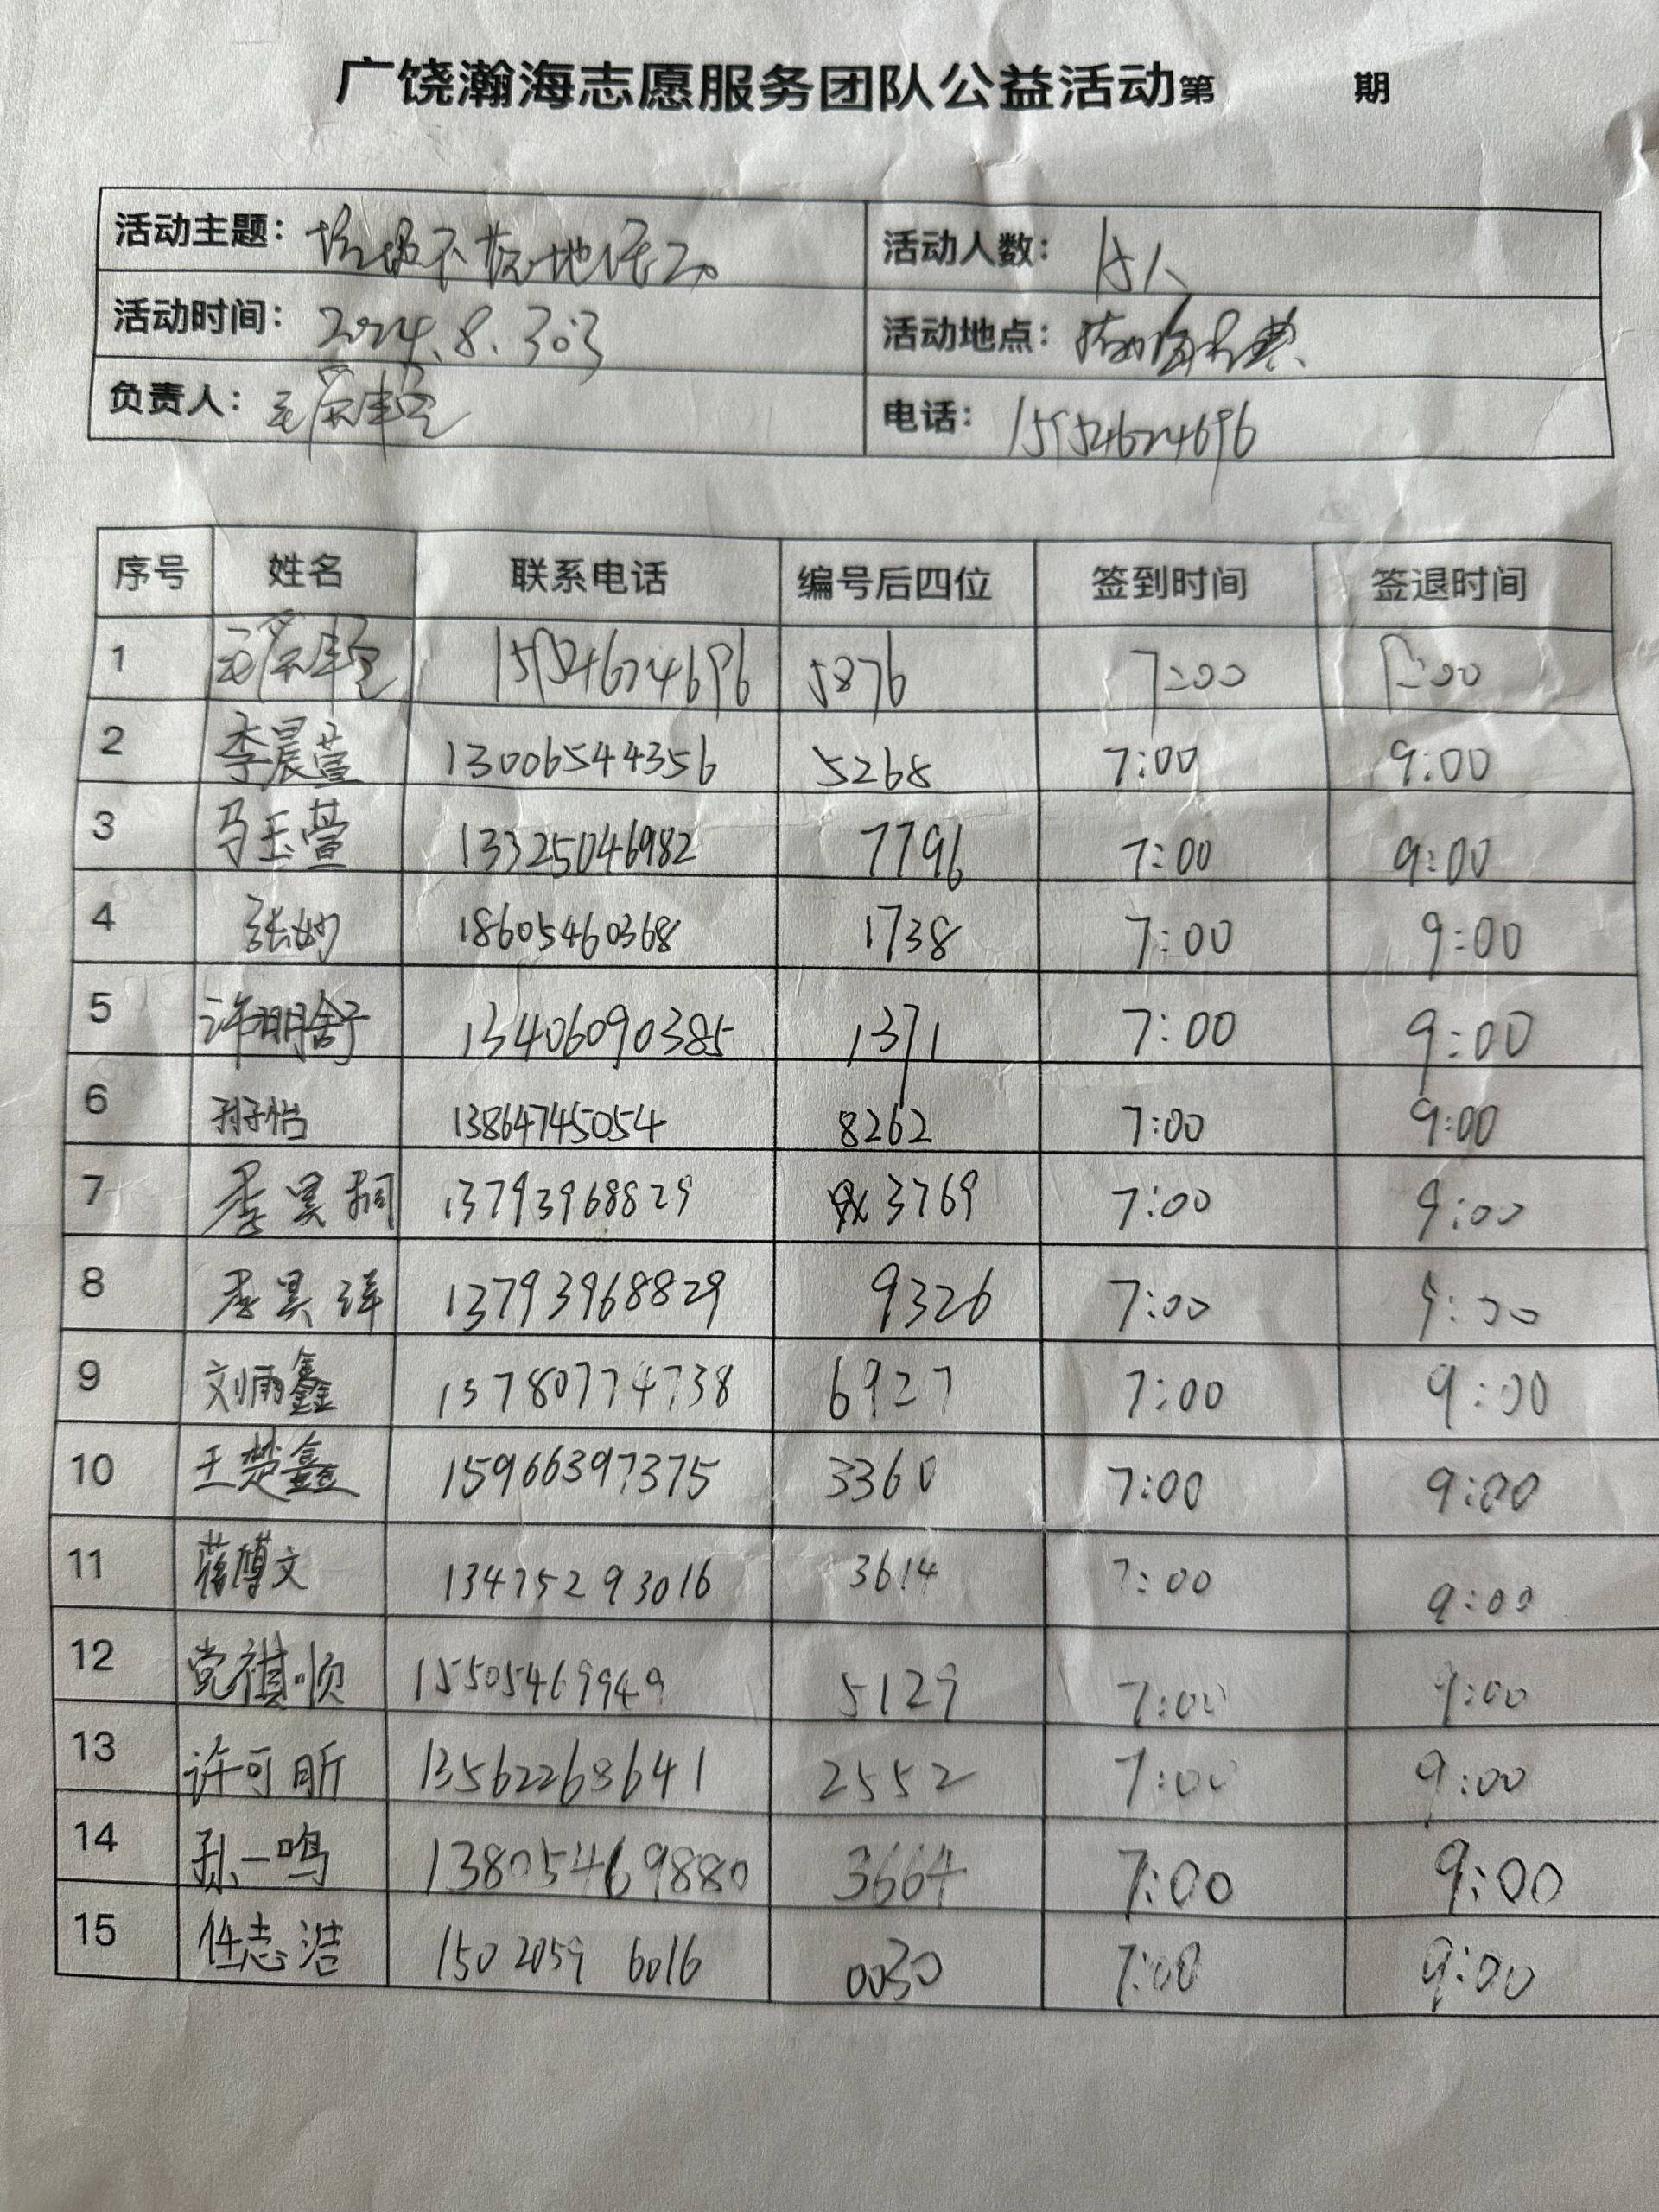 广饶瀚海志愿服务团队公益活动第 期
活动主题: 垃圾不落地活动 活动人数: 15人
活动时间: 2024.8.30日 活动地点:
负责人: 电话: 15954624696
序号 姓名 联系电话 编号后四位 签到时间 签退时间
1 15954624696 5876 7:00 9:00
2 李晨萱 13006544356 5268 7:00 9:00
3 马玉萱 13325046982 7796 7:00 9:00
4 张妙 18605460368 1738 7:00 9:00
5 许明舒 13406090385 1371 7:00 9:00
6 孙子怡 13864745054 8262 7:00 9:00
7 李昊 13793968829 3769 7:00 9:00
8 李昊洋 13793968829 9326 7:00 9:00
9 刘雨鑫 13780774738 6927 7:00 9:00
10 王楚鑫 15966397375 3360 7:00 9:00
11 蒋博文 13475293016 3614 7:00 9:00
12 党祺顺 15505469949 5129 7:00 9:00
13 许可昕 13562268641 2552 7:00 9:00
14 孙一鸣 13805469880 3664 7:00 9:00
15 任志浩 150 2059 6016 0030 7:00 9:00